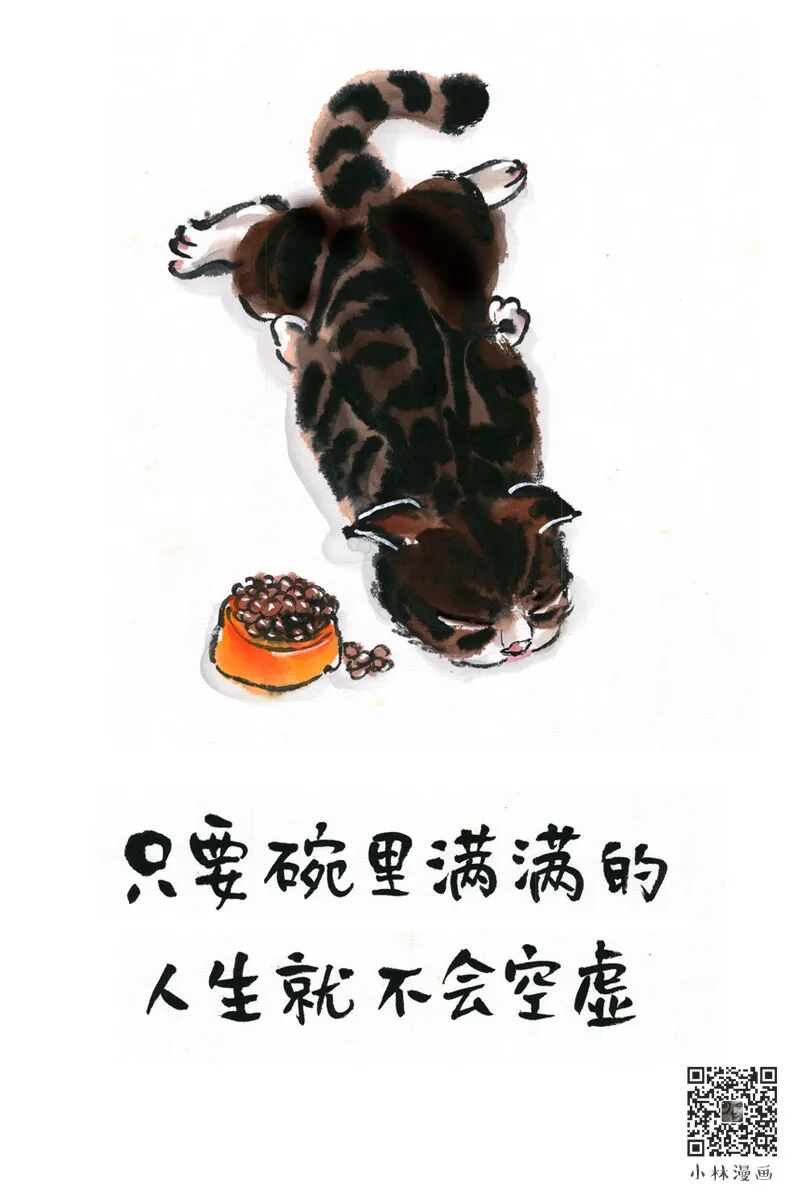 只要碗里满满的
人生就不会空虚
小林漫画